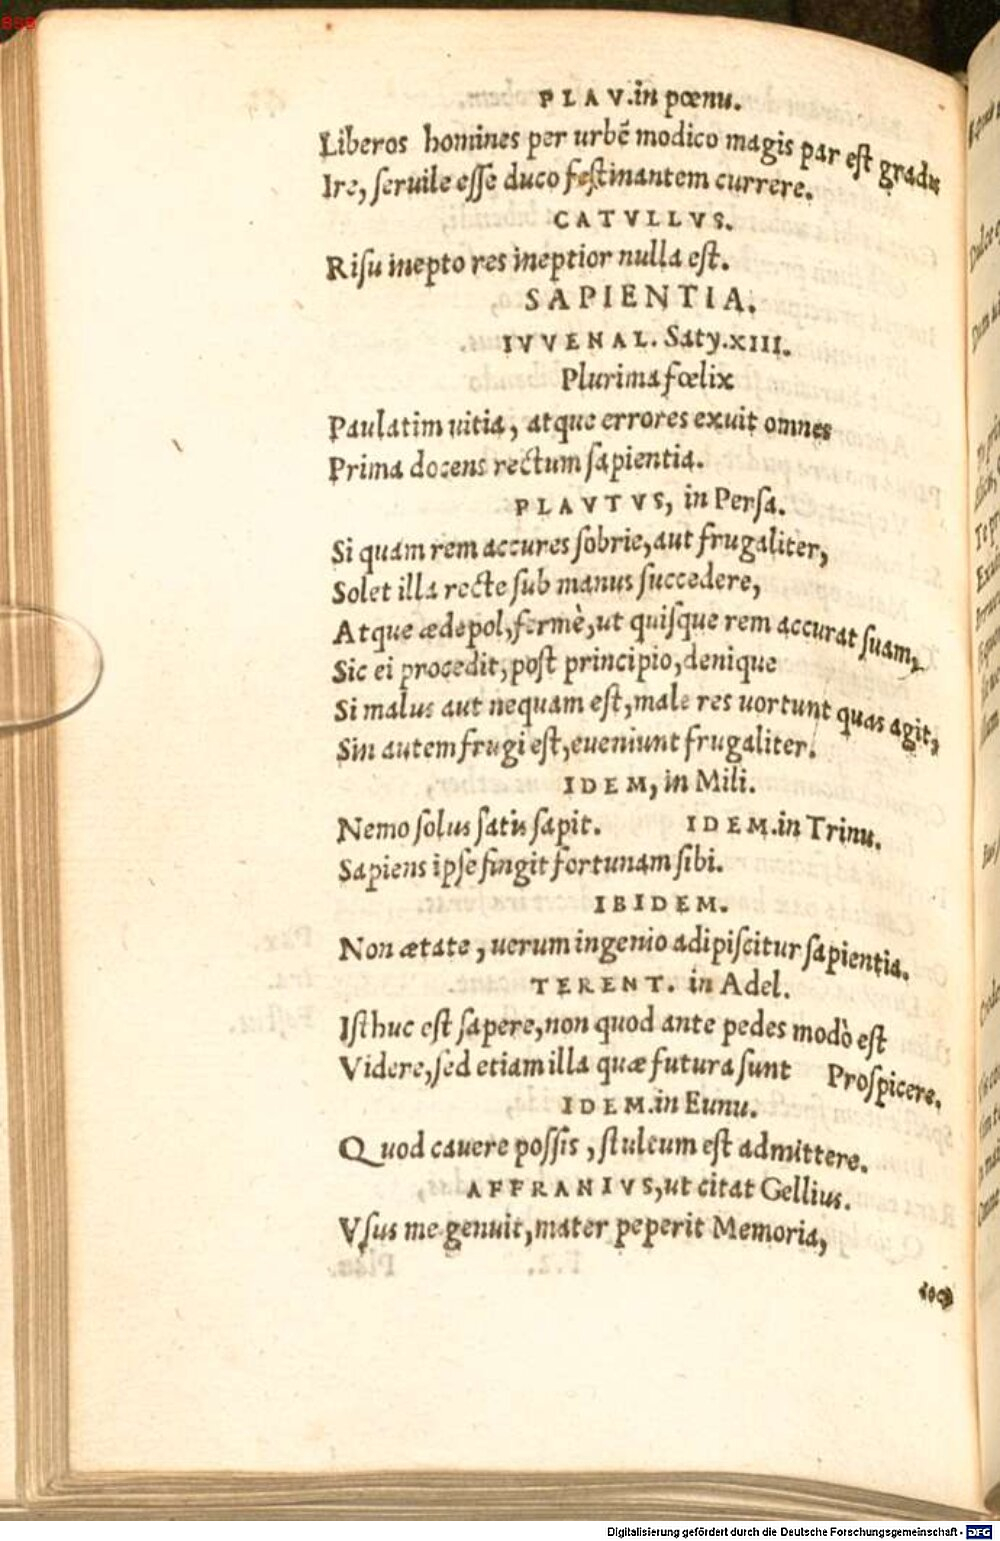 PLAV.in pœnu.
Liberos homines per urbẽ modico magis par est gradu
Ire, seruile esse duco festinantem currere.
CATVLLVS.
Risu inepto res ineptior nulla est.
SAPIENTIA.
IVVENAL. Saty.XIII.
Plurima fœlix
Paulatim uitia, atque errores exuit omnes
Prima docens rectum sapientia.
PLAVTVS, in Persa.
Si quam rem accures sobrie, aut frugaliter,
Solet illa recte sub manus succedere,
Atque ædepol, fermè, ut quisque rem accurat suam,
Sic ei procedit, post principio, denique
Si malus aut nequam est, male res uortunt quas agit,
Sin autem frugi est, eueniunt frugaliter.
IDEM, in Mili.
Nemo solus satis sapit. IDEM.in Trinu.
Sapiens ipse fingit fortunam sibi.
IBIDEM.
Non ætate, uerum ingenio adipiscitur sapientia.
TERENT. in Adel.
Isthuc est sapere, non quod ante pedes modò est
Videre, sed etiam illa quæ futura sunt Prospicere.
IDEM.in Eunu.
Quod cauere possis, stultum est admittere.
AFFRANIVS, ut citat Gellius.
Vsus me genuit, mater peperit Memoria,
Digitalisierung gefördert durch die Deutsche Forschungsgemeinschaft - DFG